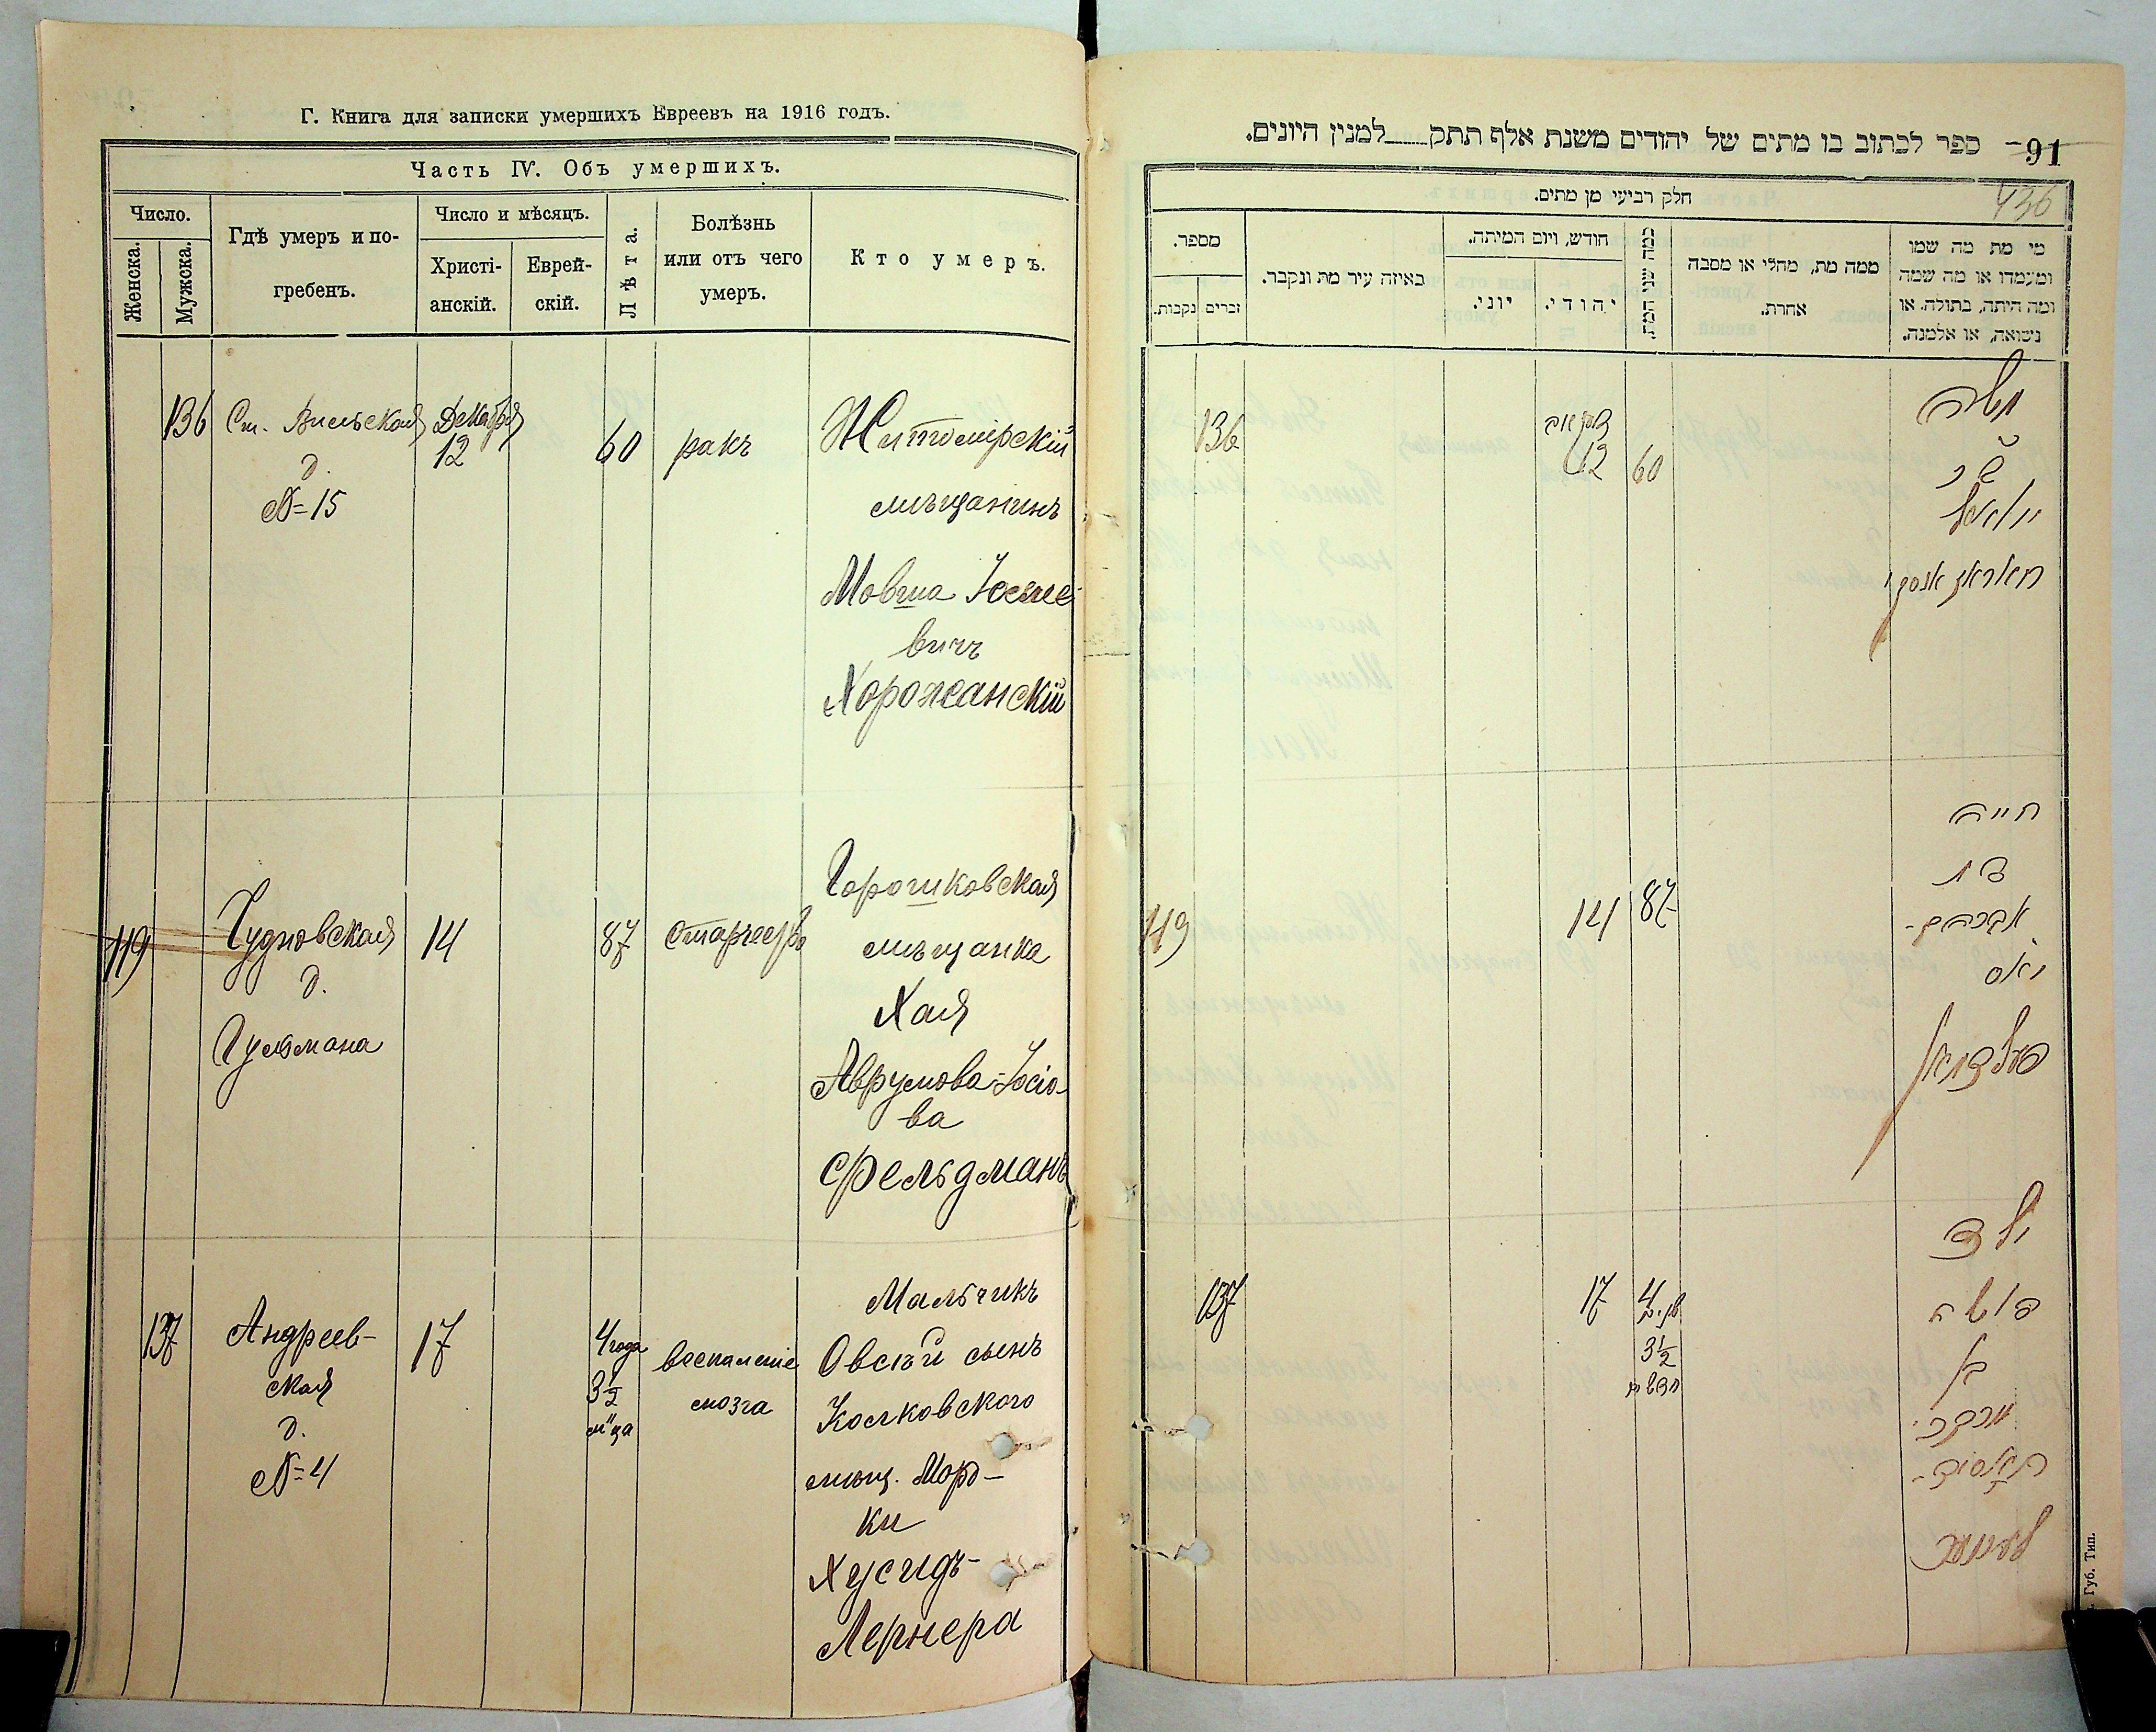 Г. Книга для записки умершихъ Евреевъ на 1916 годъ.
Часть IV. Объ умершихъ.
Число.
Женска.
Мужска.
Гдѣ умеръ и по-
гребенъ.
Число и мѣсяцъ.
Христі-
анскій.
Еврей-
скій.
Лѣта.
Болѣзнь
или отъ чего
умеръ.
Кто умеръ.
136 Ст. Вильская Декабря 60 ракъ Житомірскій
д. 12
№ 15
мѣщанинъ
Мовша
вичъ
Хорожанскій
119 Чудновская 14 87
д.
Гульмана
Горошковская
мѣщанка
Хая
Аврумова-Іосіо-
ва
Фельдманъ
137 Андреев- 17 4 года воспаленіе
ская 3½ мозга
д. м-ца
№ 4
Мальчикъ
Овсѣй сынъ
Колковского
мѣщ. Морд-
ки
Хусидъ-
Лернера
91
ספר לכתוב בו מתים של יהודים משנת אלף תתק למנין היונים.
436
חלק רביעי מן מתים.
מספר.
זכרים
נקבות.
באיזה עיר מת ונקבר.
חודש, ויום המיתה.
יוני.
יהודי.
כמה שני המת
ממה מת, מחלי או מסבה
אחרת.
מי מת מה שמו
ומעמדו או מה שמה
ומה היתה, בתולה, או
נשואה, או אלמנה.
136 12 60
משה
119 14 87
חיה
בת
אברהם-
פעלדמאן
137 17 4
3½
ילד
בן
מרדכי
חאסיד-
לערנער
Губ. Тип.